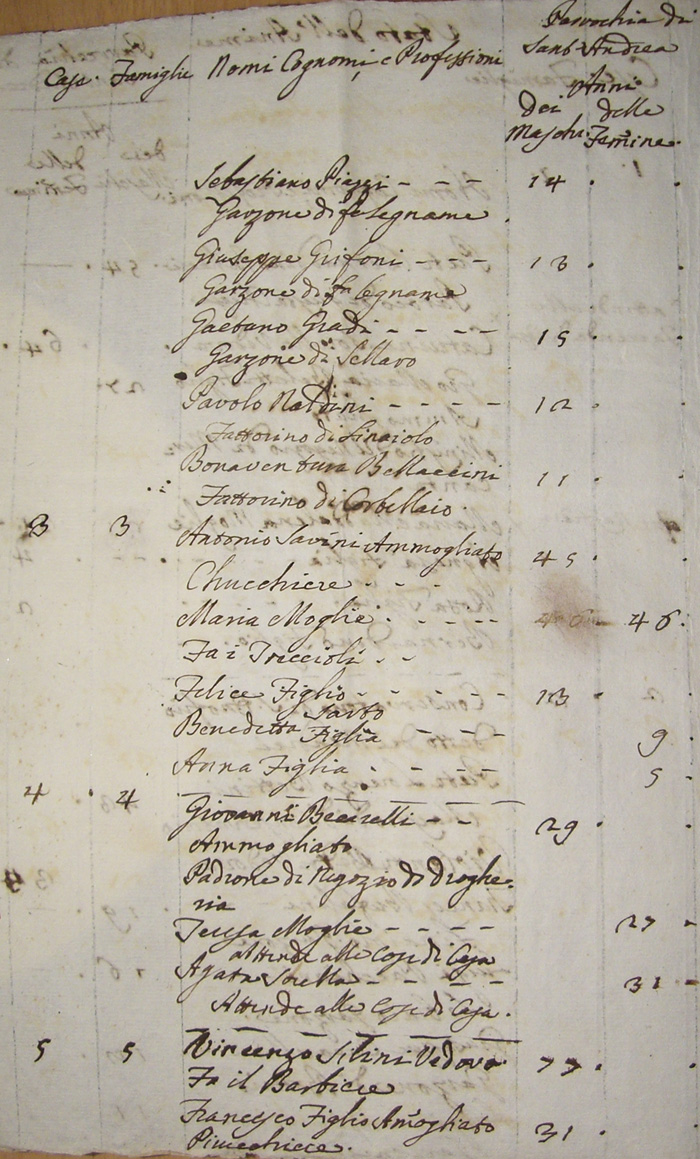 Parrochia di
Sant' Andrea
Case. Famiglie Nomi Cognomi, e Professioni
Anni
dei delle
Maschi Femine.
Sebastiano Piazzi - - - 14 .
Garzone di fa Legname .
Giuseppe Grifoni - - - 13 .
Garzone di fa Legname
Gaetano Gradi - - - - 15 .
Garzone di Sellaro
Pavolo Naldini - - - - 12 .
Fattorino di Linaiolo
Bonaventura Bellaccini 11 .
Fattorino di Corbellaio .
3 3 Antonio Savini Ammogliato 45 .
Chucchiere - - -
Maria Moglie . - - - - 46 .
Fa i Treccioli . - -
Felice Figlio - - - - - 13 .
Sarto
Benedetta Figlia - - - - 9 .
Anna Figlia . - - - - 5 .
4 . 4 Giovanni Beccarelli - - 29 .
Ammogliato
Padrone di Negozio di Droghe-
ria
Teresa Moglie - - - - 27 -
attende alle Cose di Casa
Agata Sorella - - - - 31 -
Attende alle Cose di Casa .
5 5 Vincenzo Silini Vedovo 77 .
Fa il Barbiere
Francesco Figlio Amogliato 31 .